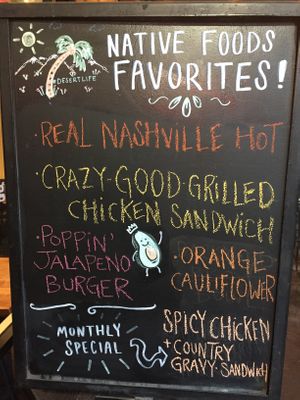 NATIVE FOODS
FAVORITES!
DESERT LIFE
·REAL NASHVILLE HOT
·CRAZY-GOOD-GRILLED
CHICKEN SANDWICH
·POPPIN'
JALAPENO
BURGER
·ORANGE
CAULIFLOWER
MONTHLY
SPECIAL
SPICY CHICKEN
+ COUNTRY
GRAVY-SANDWICH